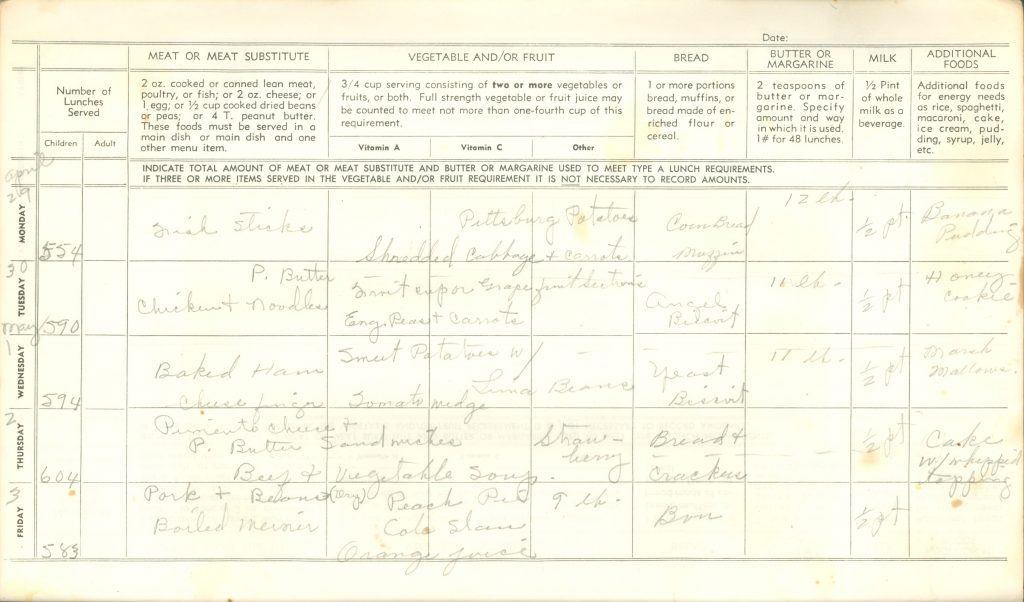 Date:
MEAT OR MEAT SUBSTITUTE VEGETABLE AND/OR FRUIT BREAD BUTTER OR MARGARINE MILK ADDITIONAL FOODS
Number of Lunches Served
Children Adult
2 oz. cooked or canned lean meat,
poultry, or fish; or 2 oz. cheese; or
1 egg; or ½ cup cooked dried beans
or peas; or 4 T. peanut butter.
These foods must be served in a
main dish or main dish and one
other menu item.
3/4 cup serving consisting of two or more vegetables or
fruits, or both. Full strength vegetable or fruit juice may
be counted to meet not more than one-fourth cup of this
requirement.
Vitamin A Vitamin C Other
1 or more portions
bread, muffins, or
bread made of en-
riched flour or
cereal.
2 teaspoons of
butter or mar-
garine. Specify
amount and way
in which it is used.
1# for 48 lunches.
½ Pint
of whole
milk as a
beverage.
Additional foods
for energy needs
as rice, spaghetti,
macaroni, cake,
ice cream, pud-
ding, syrup, jelly,
etc.
INDICATE TOTAL AMOUNT OF MEAT OR MEAT SUBSTITUTE AND BUTTER OR MARGARINE USED TO MEET TYPE A LUNCH REQUIREMENTS.
IF THREE OR MORE ITEMS SERVED IN THE VEGETABLE AND/OR FRUIT REQUIREMENT IT IS NOT NECESSARY TO RECORD AMOUNTS.
April
29
MONDAY
554
Fish Sticks
Pittsburg Potatoes
Shredded Cabbage + Carrots
Corn Bread
Muffin
12 lb.
½ pt.
Banana
Pudding
30
TUESDAY
590
P. Butter
Chicken + Noodles
Fruit cup or Grapefruit Sections
Eng. Peas + Carrots
Angel
Biscuit
11 lb.
½ pt
Honey
Cookie
May
1
WEDNESDAY
594
Baked Ham
Cheese finger
Sweet Potatoes w/
Lima Beans
Tomato wedge
Yeast
Biscuit
11 lb.
½ pt
Marsh
Mallows.
2
THURSDAY
604
Pimento cheese +
P. Butter Sandwiches
Beef + Vegetable Soup.
Straw-
berry
Bread +
Crackers
½ pt
Cake
w/ whipped
topping
3
FRIDAY
583
Pork + Beans (Dry)
Boiled Weiner
Peach Pie
Cole Slaw
Orange juice
9 lb.
Bun
½ pt